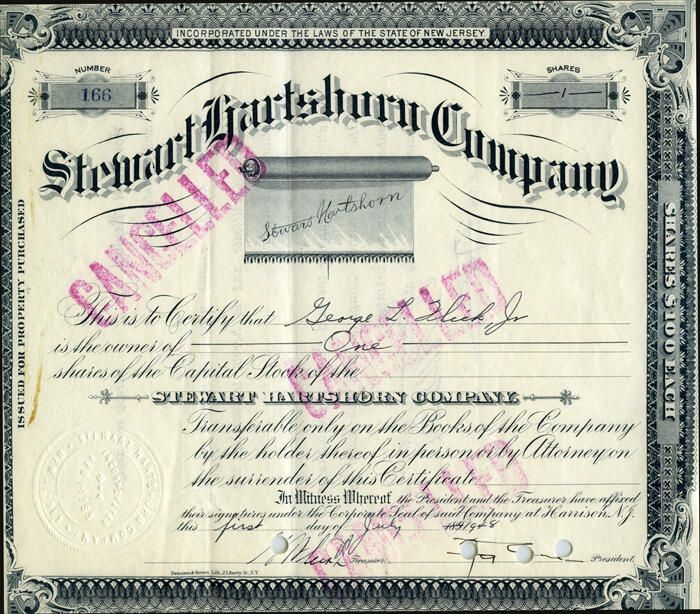 INCORPORATED UNDER THE LAWS OF THE STATE OF NEW JERSEY
NUMBER
166
SHARES
1
Stewart Hartshorn Company
Stewart Hartshorn
CANCELLED
ISSUED FOR PROPERTY PURCHASED
SHARES $100 EACH
This is to Certify that George L. Flick, Jr
is the owner of One
CANCELLED
shares of the Capital Stock of the
STEWART HARTSHORN COMPANY.
Transferable only on the Books of the Company
by the holder thereof in person or by Attorney on
the surrender of this Certificate
CANCELLED
In Witness Whereof the President and the Treasurer have affixed
their signatures under the Corporate Seal of said Company at Harrison, N.J.
this first day of July 1948
Treasurer
President
Dennison & Brown, Lith., 2 Liberty St., N.Y.
STEWART HARTSHORN COMPANY